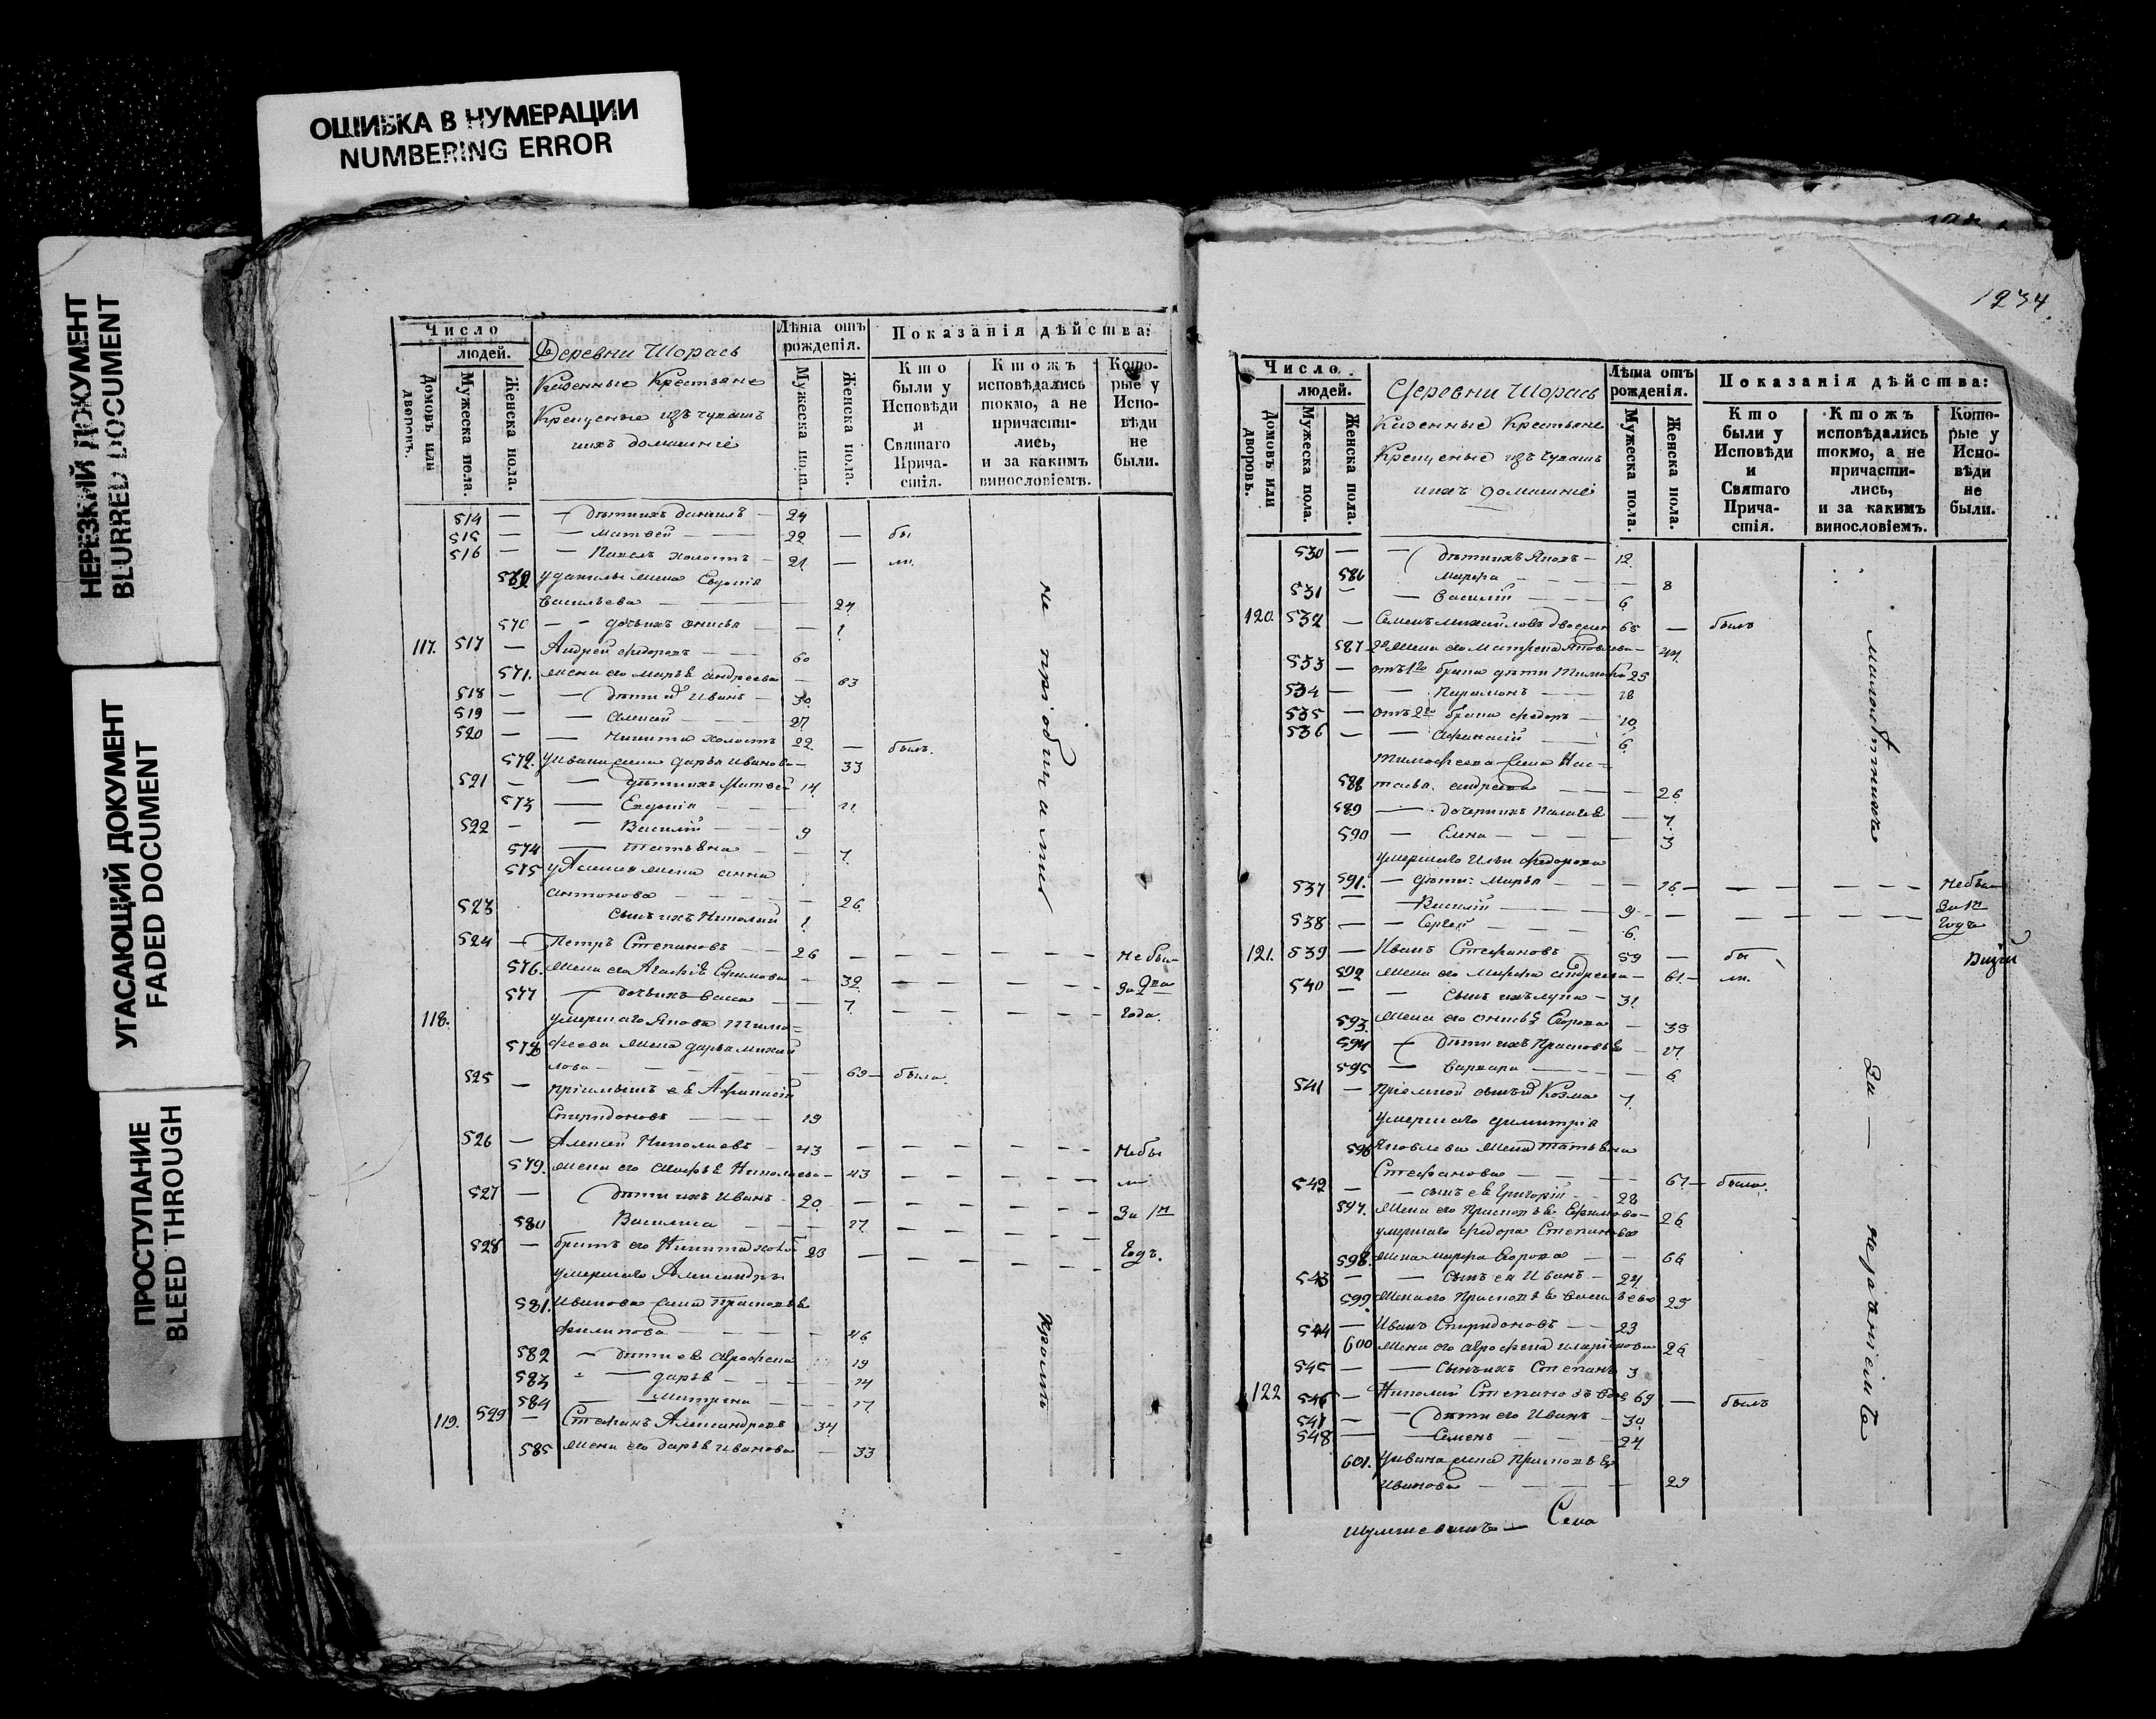 ОШИБКА В НУМЕРАЦИИ
NUMBERING ERROR
НЕРЕЗКИЙ ДОКУМЕНТ
BLURRED DOCUMENT
УГАСАЮЩИЙ ДОКУМЕНТ
FADED DOCUMENT
ПРОСТУПАНИЕ
BLEED THROUGH
Число
людей.
Домовъ или дворовъ.
Мужеска пола.
Женска пола.
Деревни Шорась
Казенные Крестьяне
Крещеные изъ чуваш
ихъ домашніе
Лѣта отъ рожденія.
Мужеска пола.
Женска пола.
Показанія дѣйства:
Кто были у Исповѣди и Святаго Прича-стія.
Ктожъ исповѣдались токмо, а не причасти-лись, и за какимъ винословіемъ.
Кото-рые у Испо-вѣди не были.
514 — дѣти ихъ Данилъ — 24
515 — Матвей — 22 — бы
516 — Павелъ холостъ — 21 — ли.
569 у Данилы жена Евдокія
Васильева — 24
570 — дочь ихъ Анисья — 1
117. 517 — Андрей Федоровъ — 60
571. жена его Марья Андреева — 63
518 — дѣти Иванъ — 30
519 — Алексей — 27
520 — Никита холостъ 22 — былъ.
572. у Ивана жена Дарья Иванова — 33
521 — дѣти ихъ Матвей 14
573 — Евдокія — 11
522 — Василій — 9
574 — Татьяна — 7
575 у Алексея жена Анна
Антонова — 26
523 сынъ ихъ Николай 1
524 — Петръ Степановъ — 26 — Небы
576. жена его Агафія Ефимова — 32
577 — дочь ихъ — 7 — года.
118. умершаго Якова Тимо=
578 феева жена Дарья Михай
лова — 69 — была.
525 — пріемышъ ея Афанасій
Спиридоновъ — 19
526 — Алексей Николаевъ — 43 — Небы
579. жена его Николаева — 43 — ли
527 — дѣти ихъ Иванъ — 20 — За 1й
580 Василиса — 17
528 — братъ его Никита 23 — Годъ.
умершаго Александра
581. Иванова жена Прасковья
Филипова — 46
582 — дѣти ея Аграфена 19
583 — Дарья — 14
584 — Матрена — 17
119. 529 — Степанъ Александровъ 34
585 жена его Дарья Иванова — 33
не пріобщались
Кромѣ
1234.
Число.
людей.
Домовъ или дворовъ.
Мужеска пола.
Женска пола.
Деревни Шорась
Казенные Крестьяне
Крещеные изъ чуваш
ихъ домашніе
Лѣта отъ рожденія.
Мужеска пола.
Женска пола.
Показанія дѣйства:
Кто были у Исповѣди и Святаго Прича-стія.
Ктожъ исповѣдались токмо, а не причасти-лись, и за какимъ винословіемъ.
Кото-рые у Испо-вѣди не были.
530 — дѣти ихъ Яковъ — 12
586 Марфа — 8
531 — Василій — 6
120. 532 — Семенъ Михайловъ 65 — былъ
587 жена его Матрена Яковлева — 44
533 — отъ 1го брака дѣти Тимофей 25
534 — Парамонъ — 18
535 — отъ 2го брака Федоръ — 10
536 — Афанасій — 6
Тимофеева жена Нас=
588 тасья Андреева — 26
589 — дочери ихъ Палагея — 7
590 — Елена — 3
умершаго Ильи Федорова
591. — дѣти: Марья — 16 — Небы
537 — Василій — 9 — За 1й
538 — Сергей — 6. Годъ
121. 539 — Иванъ Стефановъ 59 — бы
592 жена его Марфа Андреева — 61 — ли.
540 — сынъ ихъ Лука — 31
593. жена его Анисья Егорова — 33
594 — дѣти ихъ Прасковья — 17
595 — Варвара — 6
541 — пріемной сынъ Козма 7.
умершаго Димитрія
596 Яковлева жена Татьяна
Стефанова — 67 — была.
542 — сынъ ея Григорій — 28
597. жена его Прасковья Ефимова — 26
умершаго Федора Степанова
598. жена Марфа Егорова — 66
543 — сынъ ея Иванъ — 24
599. жена его Прасковья Васильева 25
544 — Иванъ Спиридоновъ — 23
600 жена его Аграфена Иларіонова 26
545 — сынъ ихъ Степанъ 3
122 546 — Николай Степановъ 69 — былъ
547 — дѣти его Иванъ — 30
548 — Семенъ — 24
601. у Ивана жена Прасковья
Иванова — 29
малолѣтныхъ
За — нерачиніемъ
Села